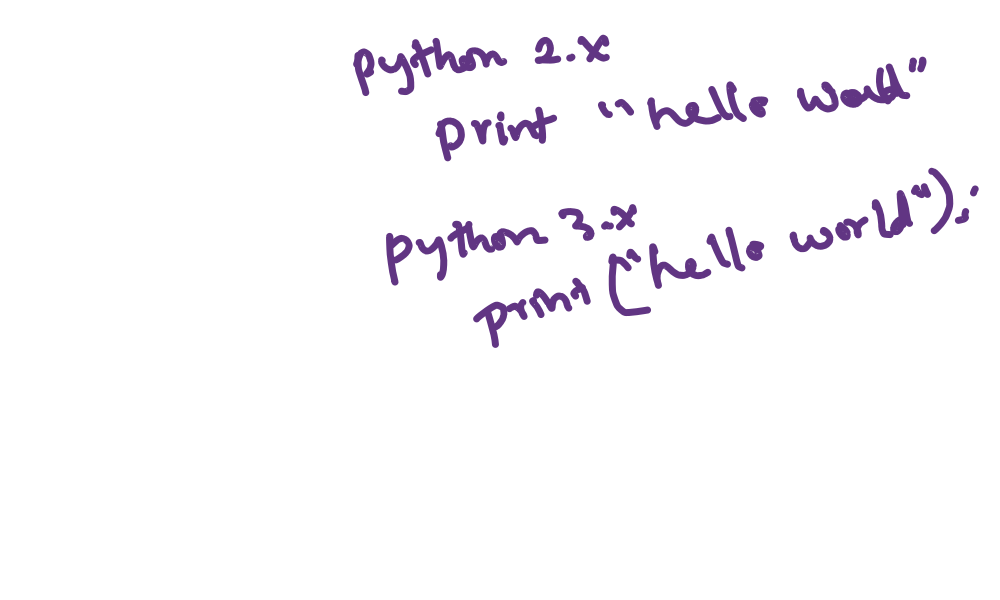 python 2.x
print "hello world"
python 3.x
print ("hello world");